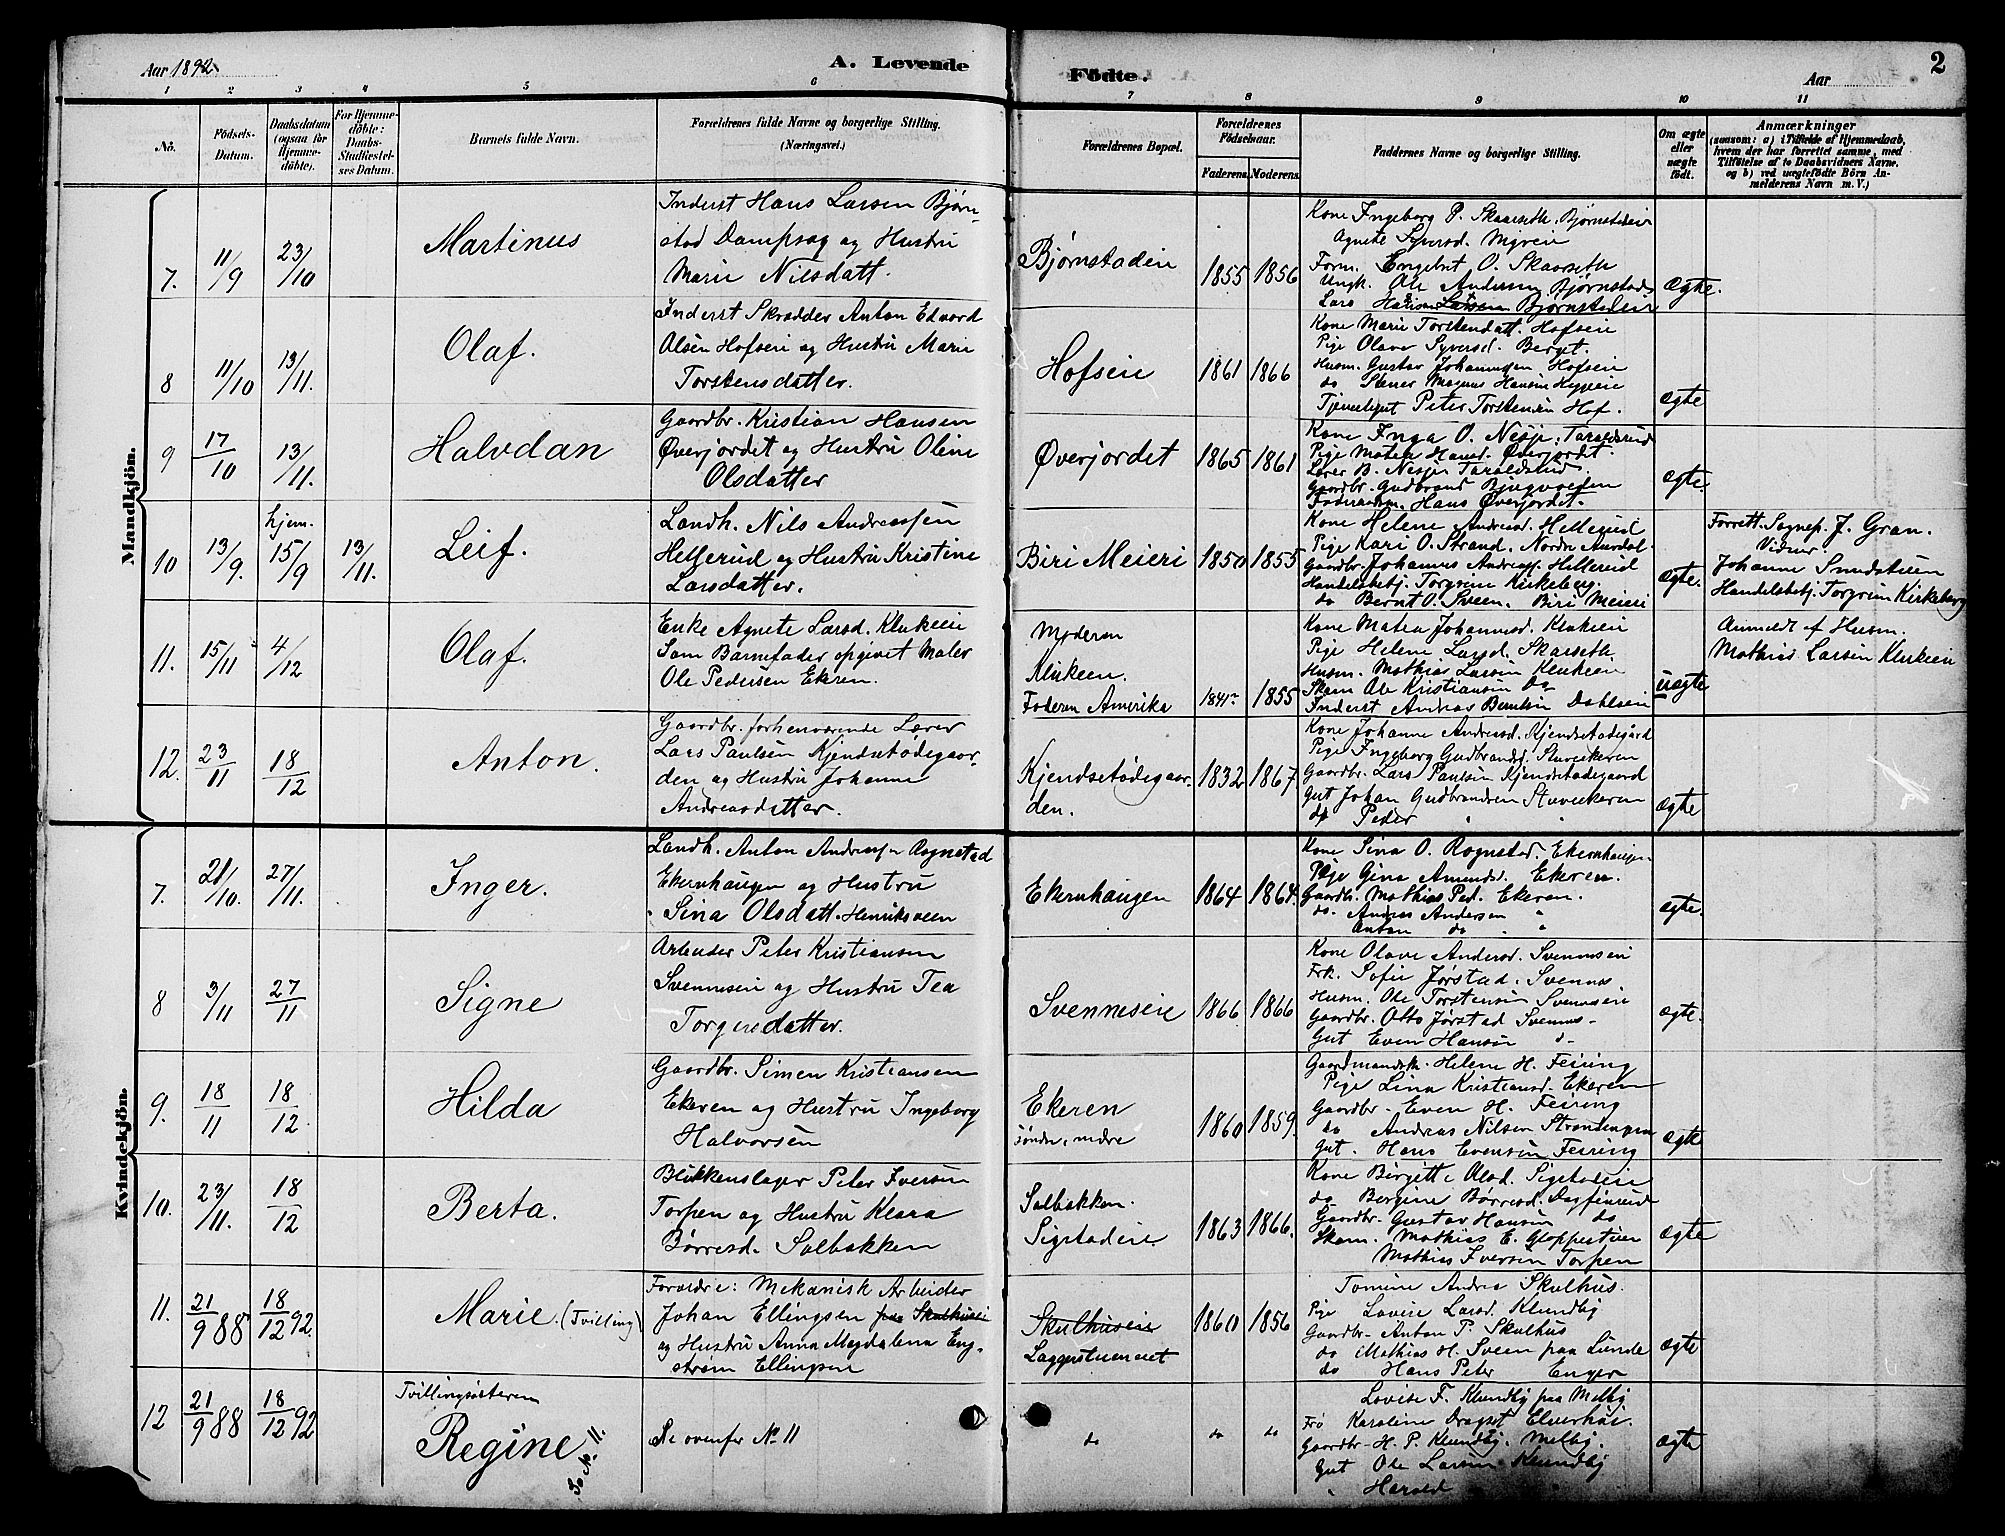 Aar 1892
A. Levende
Fødte.
Aar
2
1 2 3 4 5 6 7 8 9 10 11
No.
Födsels-Datum.
Daabsdatum (ogsaa for Hjemme-döbte).
For Hjemme-döbte: Daabs-Stadfæstelses Datum.
Barnets fulde Navn.
Forældrenes fulde Navne og borgerlige Stilling.
(Næringsvei.)
Forældrenes Bopæl.
Forældrenes Födselsaar.
Faderens. Moderens.
Faddernes Navne og borgerlige Stilling.
Om ægte eller uægte födt.
Anmærkninger
(saasom: a) i Tilfælde af Hjemmedaab, hvem der har forrettet samme, med Tilföielse af to Daabsvidners Navne, og b) ved uægtefödte Börn Anmelderens Navn m. V.)
Mandkjön.
7. 11/9 23/10 Martinus
Inderst Hans Larsen Bjørn-
stad Dampsag og Hustru
Marie Nilsdatt.
Bjørnstadeie 1855 1856
Kone Ingeborg P. Skaarseth. Bjørnstadeie
Agnete Syversd.
Engebret O. Skaarseth
Ungk. Ole Andersen Bjørnstad
Lars Hansen Larsen Bjørnstadeie
Ægte.
8 11/10 13/11. Olaf.
Inderst Skrædder Anton Edvard
Olsen Hofseie og Hustru Marie
Torstensdatter.
Hofseie 1861 1866
Kone Marie Torstendatt. Hofseie
Pige Olava Syversd. Berget.
Husm. Gustav Johannesen Hofseie
do Stener Magnus Hansen
Tjenestegut Peter Torstensen Hof.
ægte
9 17/10 13/11. Halvdan
Gaardbr. Kristian Hansen
Øverjordet og Hustru Oline
Olsdatter
Øverjordet 1865 1861
Kone Inga O. Nesje. Taraldsrud
Pige Matea Hansd. Øverjordet.
Lærer B. Nesje Taraldsrud.
Gaardbr. Gudbrand
Hans Øverjordet.
ægte.
10 13/9. hjem. 15/9 13/11. Leif.
Landh. Nils Andreassen
Hellerud og Hustru Kristine
Larsdatter.
Biri Meieri 1850 1855
Kone Helene Andreasd. Hellerud
Pige Kari O. Strand. Nordre Aurdal.
Gaardbr. Johannes Andreass. Hellerud
Handelsbetj. Torgrim Kirkeberg.
do Bernt O. Sveen. Biri Meieri
ægte.
Forrett. Sognep. J. Gran.
Vidner.
Johanne Smedstuen
Handelsbetj. Torgrim Kirkeberg
11. 15/11 4/12 Olaf.
Enke Agnete Larsd. Klukeie
Som Barnefader opgivet Maler
Ole Pedersen Ekeren.
Moderen
Klukeen.
Faderen Amerika 1841 1855
Kone Matea Johannesd. Klukeie
Pige Helene Larsd. Skarseth
Husm. Mathias Larsen Klukeie
Skom. Ole Kristiansen Do
Inderst Andreas Dahlseie
uægte
Anmeldt af Husm.
Mathias Larsen Klukeie
12. 23/11 18/12 Anton.
Gaardbr. forhenværende Lærer
Lars Paulsen Kjendsetødegaar-
den og Hustru Johanne
Andreasdatter.
Kjendsetødegaar-
den. 1832 1867.
Kone Johanne Andreasd. Kjendsetødegaard
Pige Ingeborg Gudbrandsd. Stuveekeren
Gaardbr. Lars Paulsen Kjendsetødegaard
Gut Johan Gudbrandsen Stuveekeren
do Peder " "
Ægte
Kvindekjön.
7. 21/10. 27/11. Inger.
Landh. Anton Andreasen Rognstad
Ekernhaugen og Hustru
Sina Olsdatt. Henriksveen
Ekernhaugen 1864 1864.
Kone Sina O. Rognstad. Ekernhaugen
Pige Gina Amundsd. Ekeren.
Gaardbr. Mathias Ped. Ekeren.
do. Andreas Andersen "
Anton do "
ægte.
8 3/11 27/11 Signe
Arbeider Peter Kristiansen
Svenneseie og Hustru Tea
Torgersdatter.
Svenneseie 1866 1866
Kone Olave Andersd. Svenneseie
Frk. Sofie Jørstad. Svennes.
Husm. Ole Torstensen Svenneseie
Gaardbr. Otto Jørstad Svennes
Gut Even Hansen do
ægte.
9. 18/11 18/12 Hilda
Gaardbr. Simen Kristiansen
Ekeren og Hustru Ingeborg
Halvorsen
Ekeren
søndre, nedre 1860 1859.
Gaardmandsk. Helene H. Feiring
Pige Lina Kristiansd. Ekeren
Gaardbr. Even H. Feiring
do Andreas Nilsen Strandengen
Gut. Hans Evensen Feiring
ægte
10. 23/11. 18/12 Berta.
Blikkenslager Peter Iversen
Torpen og Hustru Klara
Børresd. Solbakken
Solbakken.
Sigstadeie. 1863 1866.
Kone Birgitte Olsd. Sigstadeie
do Bergine Børresd. Dagfinrud
Gaardbr. Gustav Hansen do
Skom. Mathias E. Gloppestuen
Mathias Iversen Torpen
ægte
11. 21/9 88 18/12 92. Marie. (Tvilling)
Forældre: Mekanisk Arbeider
Johan Ellingsen fra Skulhuseie
og Hustru Anna Magdalena Eng-
strøm Ellingsen
Skulhuseie
Laggerstuenet 1860 1856
Tomine Andrea Skulhus.
Pige Lovise Larsd. Klundby
Gaardbr. Anton P. Skulhus
do Mathias H. Sveen paa Lunde
do Hans Peter Enger
ægte
12 21/9 88 18/12 92 Tvillingsøsteren
Regine. Se No. 11.
Se ovenfor No 11
do do do
Lovise F. Klundby paa Melby
Frø Karoline Dragset Elverhøi.
Gaardbr. H. P. Klundby. Melby.
Gut Ole Larsen Klundby
" Harald "
ægte